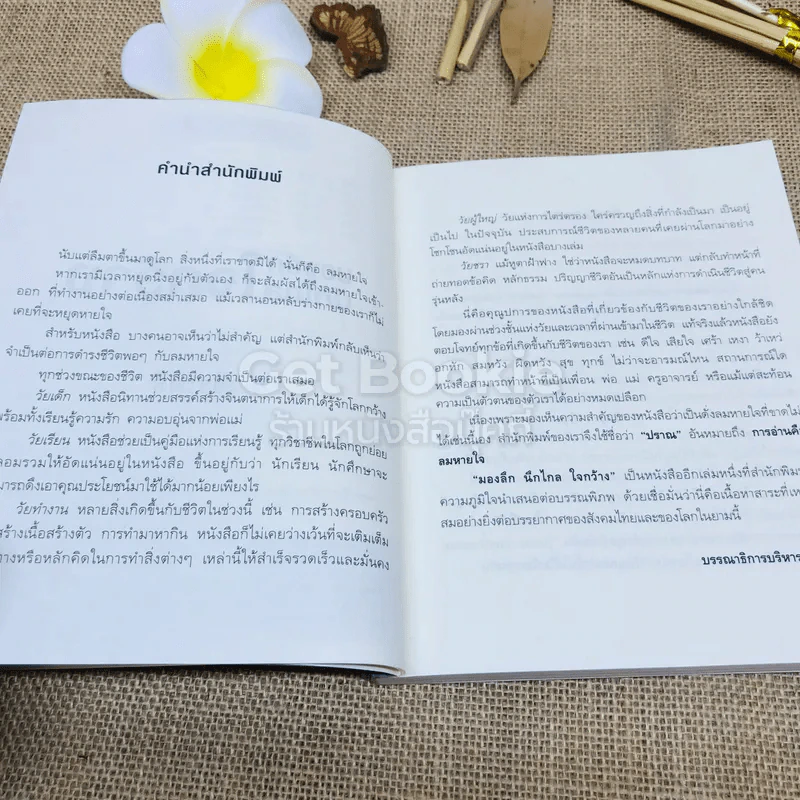 คำนำสำนักพิมพ์
นับแต่ลืมตาขึ้นมาดูโลก สิ่งหนึ่งที่เราขาดมิได้ นั่นก็คือ ลมหายใจ
หากเรามีเวลาหยุดนิ่งอยู่กับตัวเอง ก็จะสัมผัสได้ถึงลมหายใจเข้า-
ออก ที่ทำงานอย่างต่อเนื่องสม่ำเสมอ แม้เวลานอนหลับร่างกายของเราก็ไม่
เคยที่จะหยุดหายใจ
สำหรับหนังสือ บางคนอาจเห็นว่าไม่สำคัญ แต่สำนักพิมพ์กลับเห็นว่า
จำเป็นต่อการดำรงชีวิตพอๆ กับลมหายใจ
ทุกช่วงขณะของชีวิต หนังสือมีความจำเป็นต่อเราเสมอ
วัยเด็ก หนังสือนิทานช่วยสรรค์สร้างจินตนาการให้เด็กได้รู้จักโลกกว้าง
พร้อมทั้งเรียนรู้ความรัก ความอบอุ่นจากพ่อแม่
วัยเรียน หนังสือช่วยเป็นคู่มือแห่งการเรียนรู้ ทุกวิชาชีพในโลกถูกย่อย
ลอมรวมให้อัดแน่นอยู่ในหนังสือ ขึ้นอยู่กับว่า นักเรียน นักศึกษาจะ
มารถดึงเอาคุณประโยชน์มาใช้ได้มากน้อยเพียงไร
วัยทำงาน หลายสิ่งเกิดขึ้นกับชีวิตในช่วงนี้ เช่น การสร้างครอบครัว
สร้างเนื้อสร้างตัว การทำมาหากิน หนังสือก็ไม่เคยว่างเว้นที่จะเติมเต็ม
ทางหรือหลักคิดในการทำสิ่งต่างๆ เหล่านี้ให้สำเร็จรวดเร็วและมั่นคง
วัยผู้ใหญ่ วัยแห่งการไตร่ตรอง ใคร่ครวญถึงสิ่งที่กำลังเป็นมา เป็นอยู่
เป็นไป ในปัจจุบัน ประสบการณ์ชีวิตของหลายคนที่เคยผ่านโลกมาอย่าง
โชกโชนอัดแน่นอยู่ในหนังสือบางเล่ม
วัยชรา แม้หูตาฝ้าฟาง ใช่ว่าหนังสือจะหมดบทบาท แต่กลับทำหน้าที่
ถ่ายทอดข้อคิด หลักธรรม ปริญญาชีวิตอันเป็นหลักแห่งการดำเนินชีวิตสู่คน
รุ่นหลัง
นี่คือคุณูปการของหนังสือที่เกี่ยวข้องกับชีวิตของเราอย่างใกล้ชิด
โดยมองผ่านช่วงชั้นแห่งวัยและเวลาที่ผ่านเข้ามาในชีวิต แท้จริงแล้วหนังสือยัง
ตอบโจทย์ทุกข้อที่เกิดขึ้นกับชีวิตของเรา เช่น ดีใจ เสียใจ เศร้า เหงา ว้าเหว่
อกหัก สมหวัง ผิดหวัง สุข ทุกข์ ไม่ว่าจะอารมณ์ไหน สถานการณ์ใด
หนังสือสามารถทำหน้าที่เป็นเพื่อน พ่อ แม่ ครูอาจารย์ หรือแม้แต่สะท้อน
ความเป็นตัวตนของตัวเราได้อย่างหมดเปลือก
เนื่องเพราะมองเห็นความสำคัญของหนังสือว่าเป็นดังลมหายใจที่ขาดไม่
ได้เช่นนี้เอง สำนักพิมพ์ของเราจึงใช้ชื่อว่า "ปราณ" อันหมายถึง การอ่านคือ
ลมหายใจ
"มองลึก นึกไกล ใจกว้าง" เป็นหนังสืออีกเล่มหนึ่งที่สำนักพิมพ์
ความภูมิใจนำเสนอต่อบรรณพิภพ ด้วยเชื่อมั่นว่านี่คือเนื้อหาสาระที่เห
สมอย่างยิ่งต่อบรรยากาศของสังคมไทยและของโลกในยามนี้
บรรณาธิการบริหาร
Get Bookie
ร้านหนังสือบุ๊กกี้